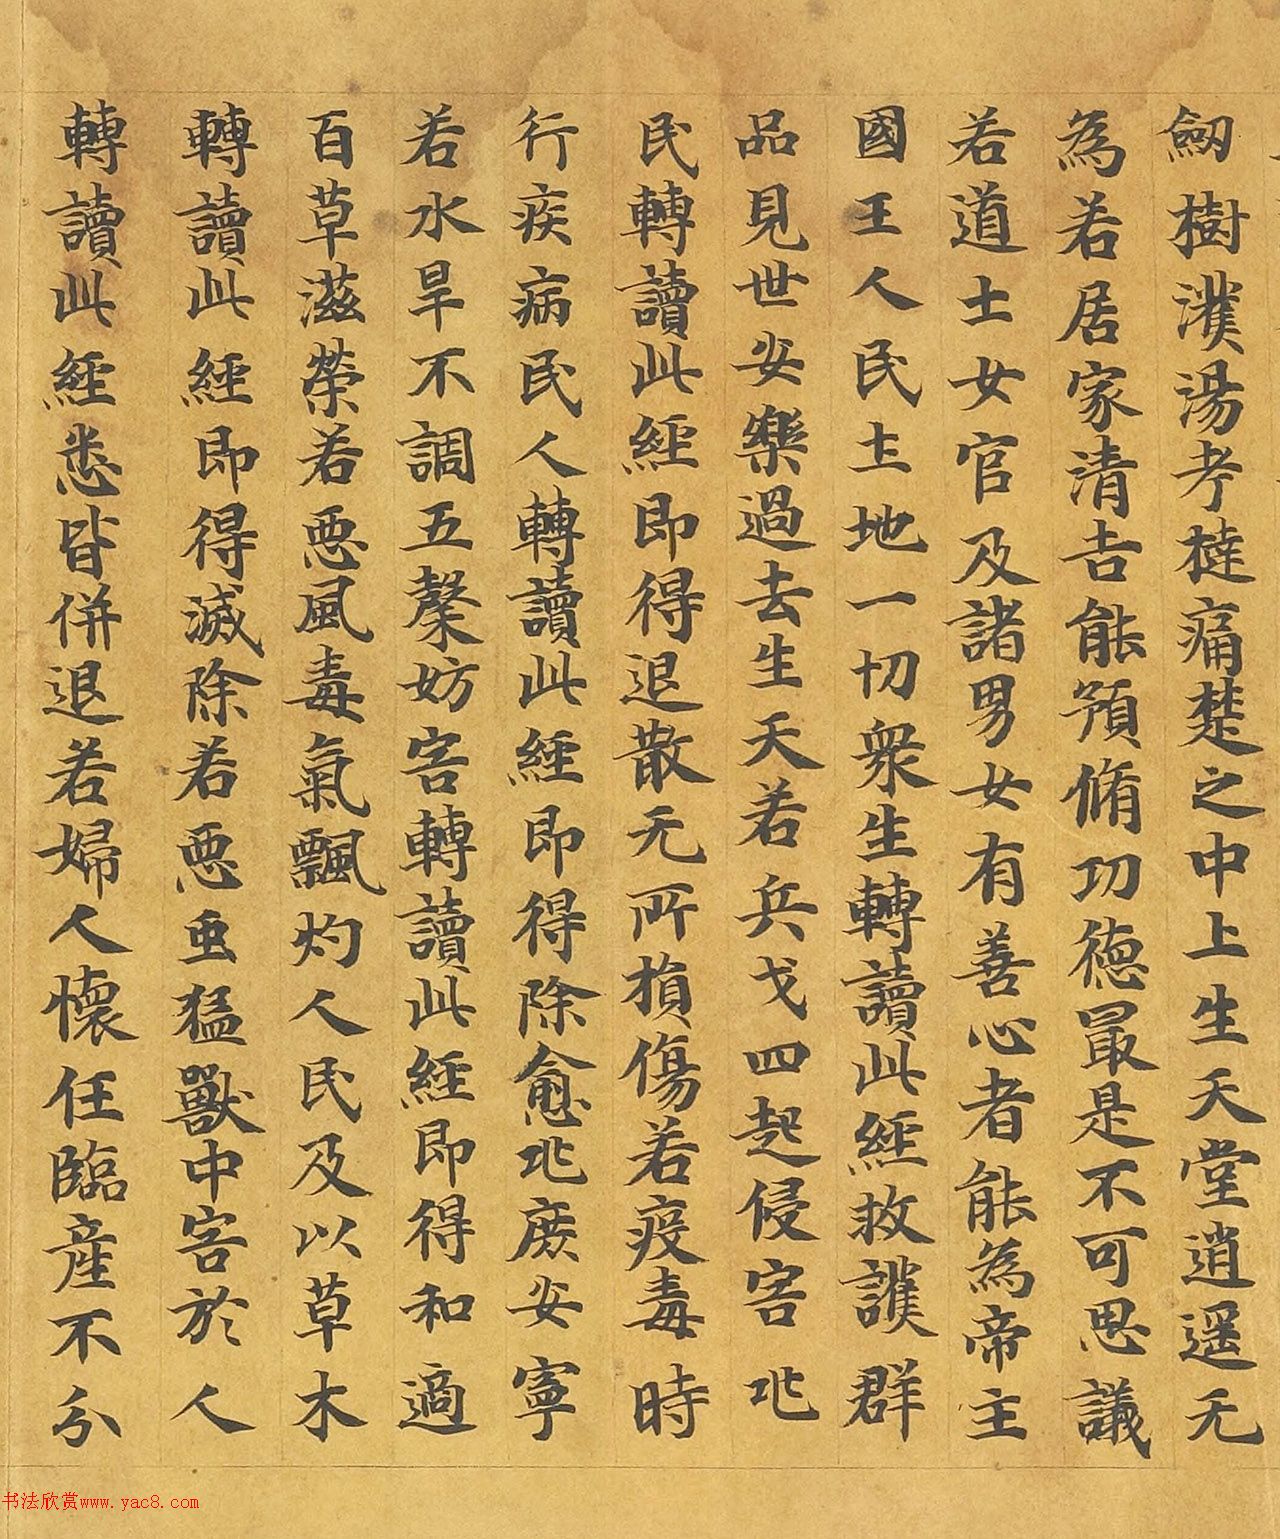 劔樹濩湯考撻痛楚之中上生天堂逍遥无
為若居家清吉能預脩功德最是不可思議
若道士女官及諸男女有善心者能為帝主
國王人民土地一切衆生轉讀此經救護群
品見世安樂過去生天若兵戈四起侵害兆
民轉讀此經即得退散无所損傷若疫毒時
行疾病民人轉讀此經即得除愈兆庶安寧
若水旱不調五糓妨害轉讀此經即得和適
百草滋榮若惡風毒氣飄灼人民及以草木
轉讀此經即得滅除若惡虫猛獸中害於人
轉讀此經悉皆併退若婦人懷任臨產不分
书法欣赏www.yac8.com